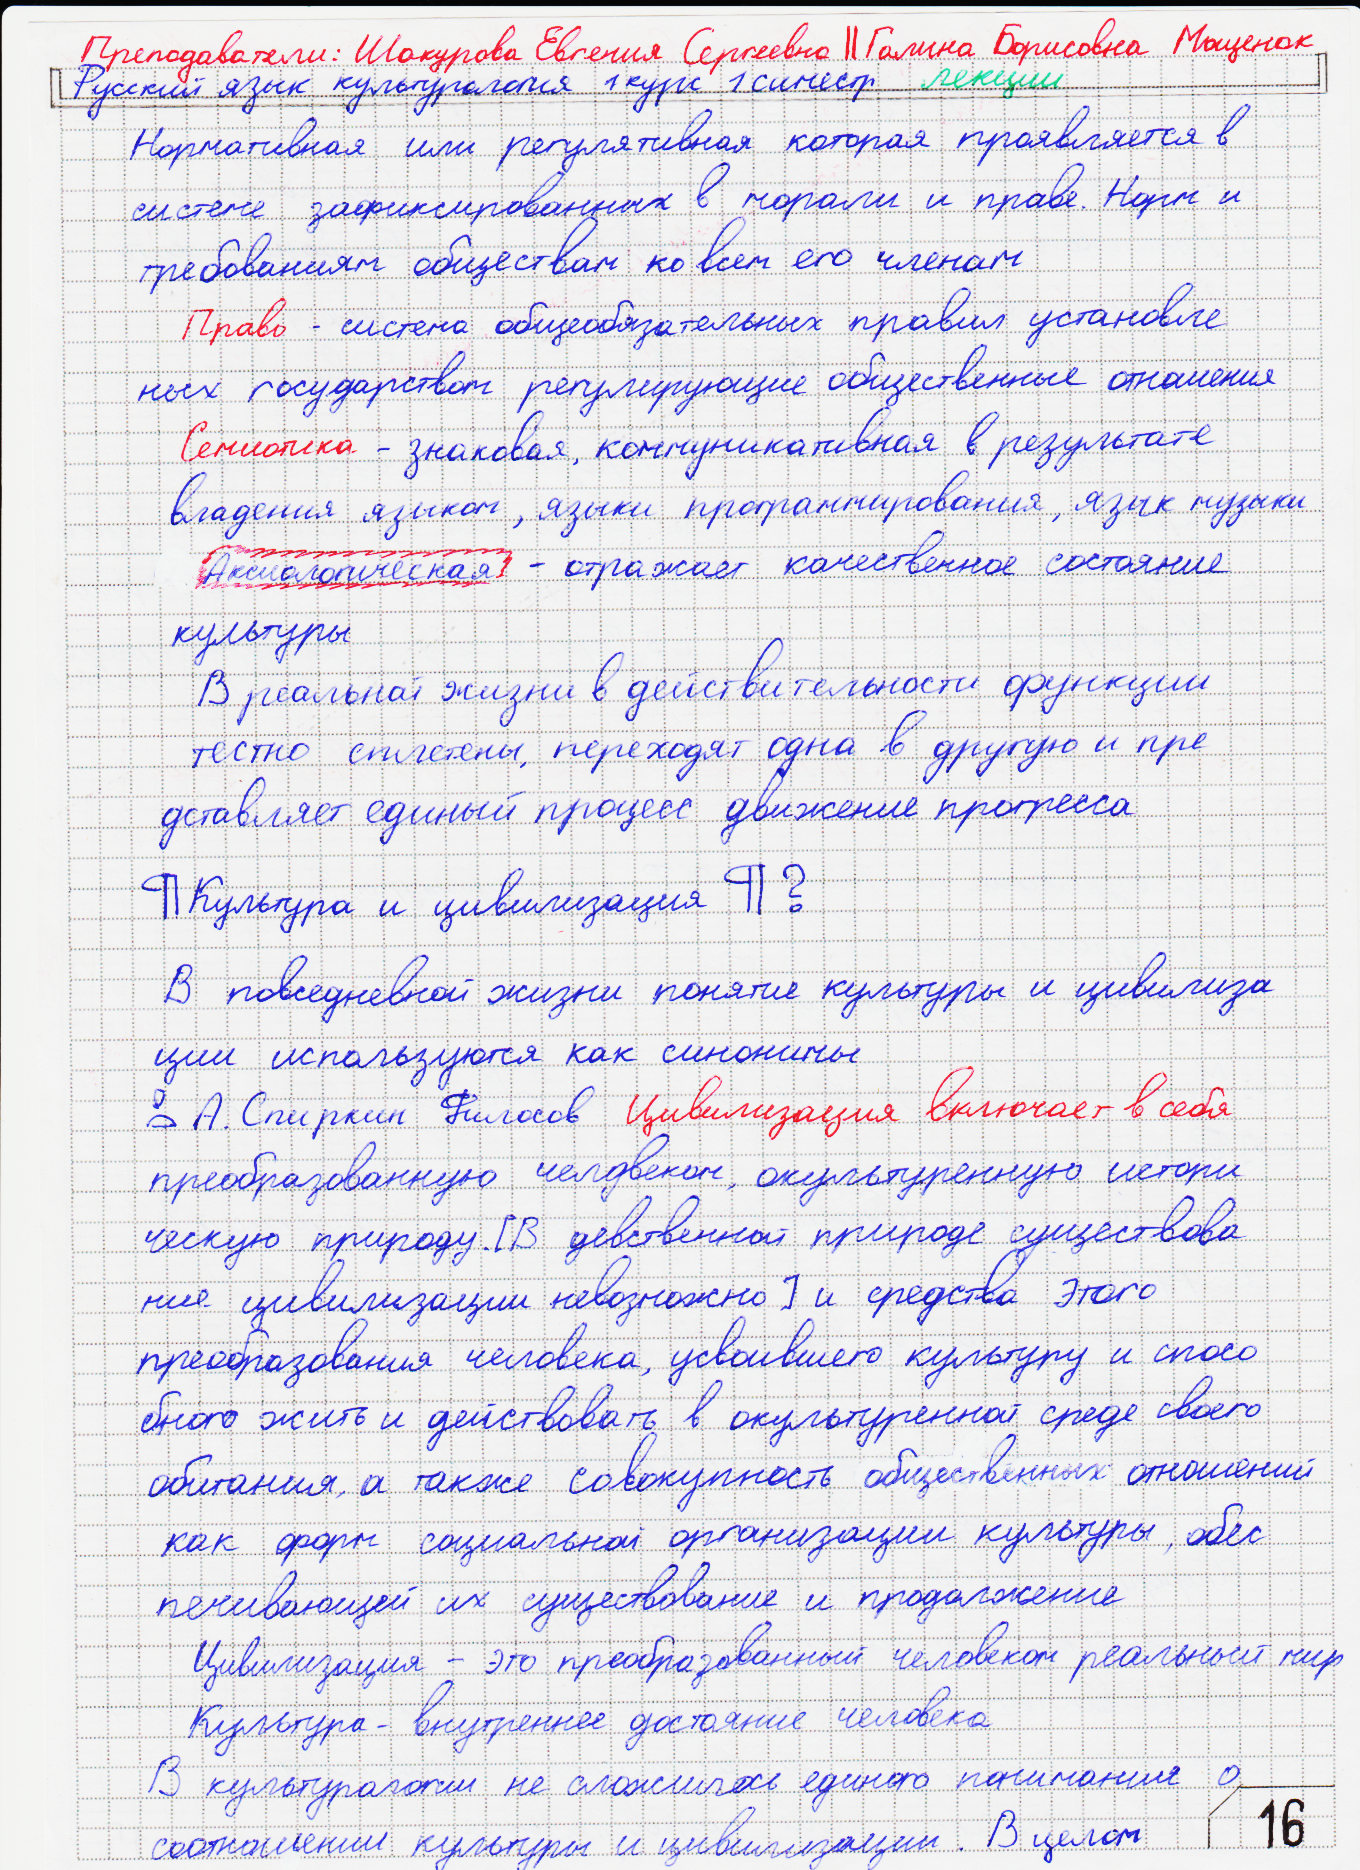 Преподаватели: Шакурова Евгения Сергеевна || Галина Борисовна Мыщенок
Русский язык культурология 1 курс 1 симестр лекции
Нормативная или регулятивная которая проявляется в
системе зафиксированных в морали и праве. Норм и
требованиям обществам ко всем его членам
Право - система общеобязательных правил установле
ных государством регулирующие общественные отношения
Семиотика - знаковая, коммуникативная в результате
владения языком, языки программирования, язык музыки
Аксиологическая - отражает качественное состояние
культуры
В реальной жизни в действительности функции
тестно сплетены, переходят одна в другую и пре
дставляет единый процесс движение прогресса
¶ Культура и цивилизация ¶ ?
В повседневной жизни понятие культуры и цивилиза
ции используются как синонимы
А. Спиркин Филосов Цивилизация включает в себя
преобразованную человеком, окультуренную истори
ческую природу. [В девственной природе существова
ние цивилизации невозможно] и средства этого
преобразования человека, усвоившего культуру и спосо
бного жить и действовать в окультуренной среде своего
обитания, а также совокупность общественных отношений
как форм социальной организации культуры, обес
печивающей их существование и продолжение
Цивилизация - это преобразованный человеком реальный мир
Культура - внутреннее достояние человека
В культурологии не сложилось единого понимания о
соотношении культуры и цивилизации. В целом
16